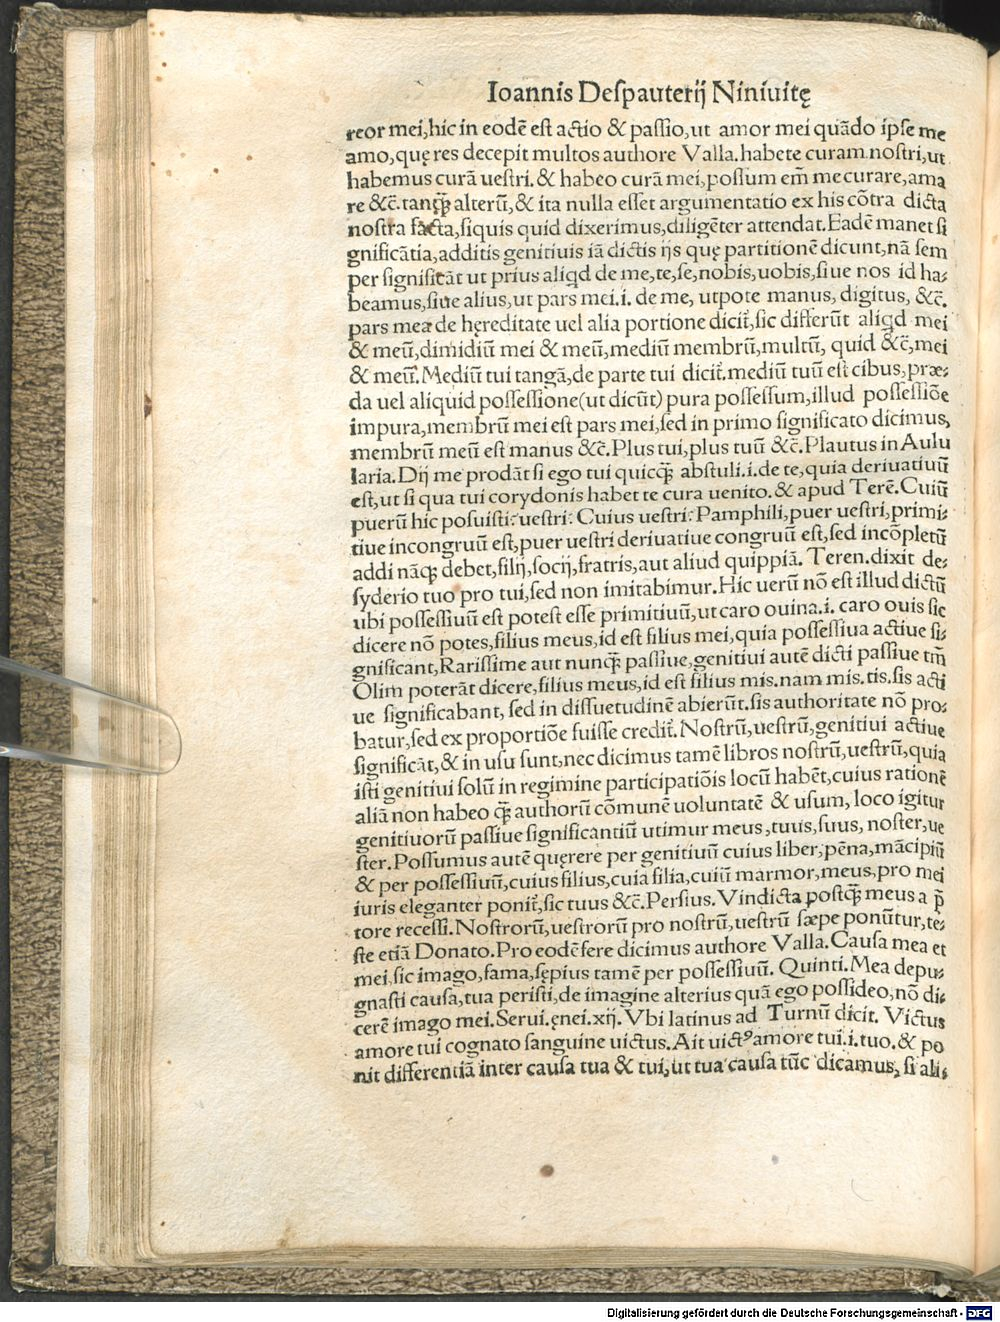 Ioannis Despauterij Niniuitę
reor mei,hic in eodē est actio & passio,ut amor mei quādo ipse me
amo,quę res decepit multos authore Valla.habete curam nostri,ut
habemus curā uestri.& habeo curā mei,possum em̄ me curare,ama
re &c̄.tanq̄ꝫ alterū,& ita nulla esset argumentatio ex his cōtra dicta
nostra facta,siquis quid dixerimus,diligēter attendat.Eadē manet si
gnificātia,additis genitiuis iā dictis ijs quę partitionē dicunt,nā sem
per significāt ut prius aliqd de me,te,se,nobis,uobis,siue nos id ha-
beamus,siue alius,ut pars mei.i. de me, utpote manus, digitus, &c̄.
pars mea de hęreditate uel alia portione dicit̄,sic differūt aliqd mei
& meū,dimidiū mei & meū,mediū membrū,multū, quid &c̄,mei
& meū.Mediū tui tangā,de parte tui dicit̄.mediū tuū est cibus,præ-
da uel aliquid possessione(ut dicūt) pura possessum,illud possessiōe
impura,membrū mei est pars mei,sed in primo significato dicimus,
membrū meū est manus &c̄.Plus tui,plus tuū &c̄.Plautus in Aulu
laria.Dij me prodāt si ego tui quicq̄ꝫ abstuli.i.de te,quia deriuatiuū
est,ut si qua tui corydonis habet te cura uenito.& apud Terē.Cuiū
puerū hic posuisti?uestri? Cuius uestri?Pamphili,puer uestri,primi-
tiue incongruū est,puer uestri deriuatiue congruū est,sed incōpletū
addi nāqꝫ debet,filij,socij,fratris,aut aliud quippiā. Teren.dixit de-
syderio tuo pro tui,sed non imitabimur.Hic uerū nō est illud dictū
ubi possessiuū est potest esse primitiuū,ut caro ouina.i. caro ouis sic
dicere nō potes,filius meus,id est filius mei,quia possessiua actiue si-
gnificant,Rarissime aut nunq̄ꝫ passiue,genitiui autē dicti passiue tm̄
Olim poterāt dicere,filius meus,id est filius mis.nam mis.tis.sis acti
ue significabant, sed in dissuetudinē abierūt.sis authoritate nō pro-
batur,sed ex proportiōe fuisse credit̄.Nostrū,uestrū,genitiui actiue
significāt,& in usu sunt,nec dicimus tamē libros nostrū,uestrū,quia
isti genitiui solū in regimine participatiōis locū habēt,cuius rationē
aliā non habeo q̄ꝫ authorū cōmunē uoluntatē & usum, loco igitur
genitiuorū passiue significantiū utimur meus,tuus,suus, noster,ue
ster.Possumus autē quęrere per genitiuū cuius liber,pēna,mācipiū
& per possessiuū,cuius filius,cuia filia,cuiū marmor,meus,pro mei
iuris eleganter ponit̄,sic tuus &c̄.Persius.Vindicta postq̄ꝫ meus a p̄
tore recessi.Nostrorū,uestrorū pro nostrū,uestrū sæpe ponūtur,te-
ste etiā Donato.Pro eodē fere dicimus authore Valla.Causa mea et
mei,sic imago,fama,sępius tamē per possessiuū. Quinti.Mea depu-
gnasti causa,tua peristi,de imagine alterius quā ego possideo,nō di-
cerē imago mei.Serui.ęnei.xij.Vbi latinus ad Turnū dicit. Victus
amore tui cognato sanguine uictus.Ait uictꝰ amore tui.i.tuo.& po
nit differentiā inter causa tua & tui,ut tua causa tūc dicamus, si ali-
Digitalisierung gefördert durch die Deutsche Forschungsgemeinschaft - DFG